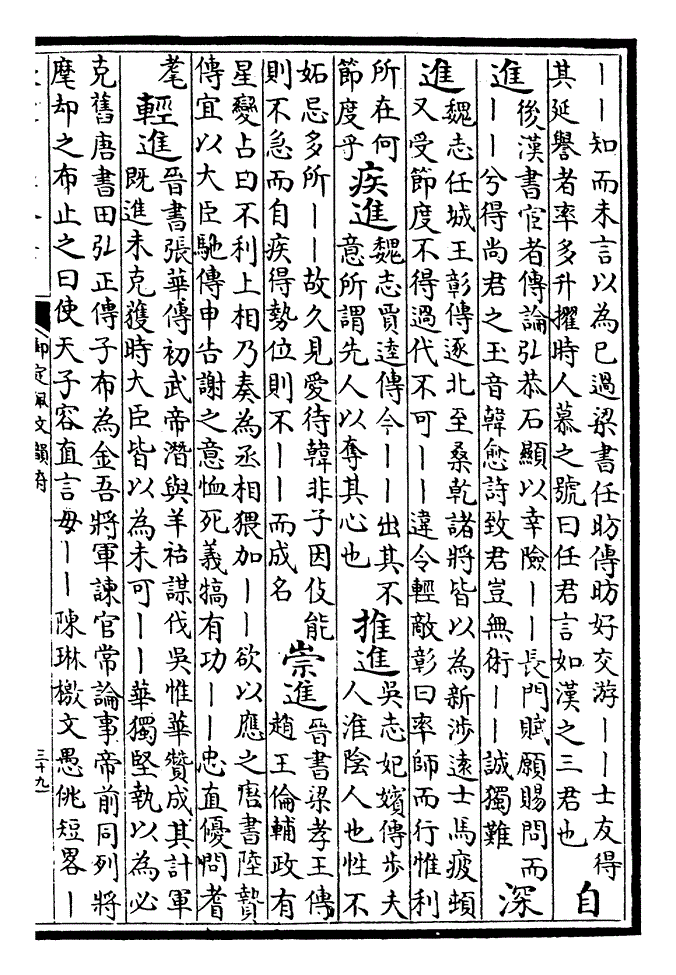 ——知而未言以為已過梁書任昉傳昉好交游——士友得
其延譽者率多升擢時人慕之號曰任君言如漢之三君也
自
進
後漢書宦者傳論弘恭石顯以幸險——長門賦願賜問而
——兮得尚君之玉音韓愈詩致君豈無術——誠獨難
深
進
魏志任城王彰傳逐北至桑乾諸將皆以為新涉遠士馬疲頓
又受節度不得過代不可——違令輕敵彰曰率師而行惟利
所在何
節度乎
疾進
魏志賈逵傳今——出其不
意所謂先人以奪其心也
推進
吳志妃嬪傳步夫
人淮陰人也性不
妬忌多所——故久見愛待韓非子因伎能
則不急而自疾得勢位則不——而成名
崇進
晉書梁孝王傳
趙王倫輔政有
星變占曰不利上相乃奏為丞相猥加——欲以應之唐書陸贄
傳宜以大臣馳傳申告謝之意恤死義犒有功——忠直優問耆
耄
輕進
晉書張華傳初武帝潛與羊祜謀伐吳惟華贊成其計軍
既進未克獲時大臣皆以為未可——華獨堅執以為必
克舊唐書田弘正傳子布為金吾將軍諫官常論事帝前同列將
麾却之布止之曰使天子容直言毋——陳琳檄文愚佻短畧—
御定佩文韻府
三十九